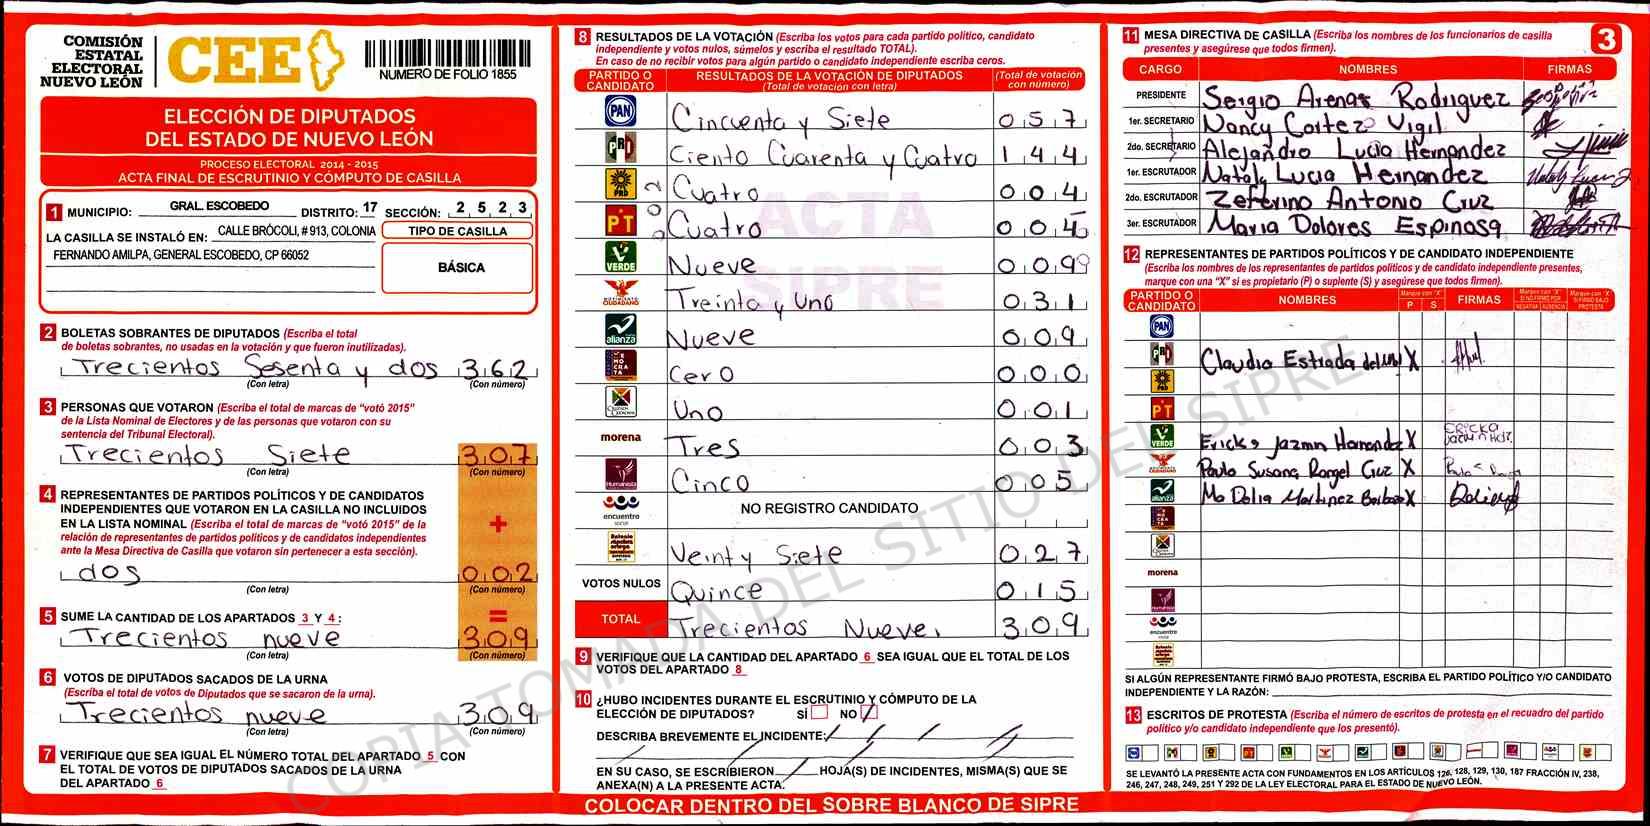 COMISIÓN
ESTATAL
ELECTORAL
NUEVO LEÓN
CEE
NUMERO DE FOLIO 1855
ELECCIÓN DE DIPUTADOS
DEL ESTADO DE NUEVO LEÓN
PROCESO ELECTORAL 2014 - 2015
ACTA FINAL DE ESCRUTINIO Y CÓMPUTO DE CASILLA
1 MUNICIPIO: GRAL. ESCOBEDO DISTRITO: 17 SECCIÓN: 2 5 2 3
LA CASILLA SE INSTALÓ EN: CALLE BRÓCOLI, # 913, COLONIA
FERNANDO AMILPA, GENERAL ESCOBEDO, CP 66052
TIPO DE CASILLA
BÁSICA
2 BOLETAS SOBRANTES DE DIPUTADOS (Escriba el total
de boletas sobrantes, no usadas en la votación y que fueron inutilizadas).
Trecientos Sesenta y dos 3 6 2
(Con letra) (Con número)
3 PERSONAS QUE VOTARON (Escriba el total de marcas de “votó 2015”
de la Lista Nominal de Electores y de las personas que votaron con su
sentencia del Tribunal Electoral).
Trecientos Siete 3 0 7
(Con letra) (Con número)
4 REPRESENTANTES DE PARTIDOS POLÍTICOS Y DE CANDIDATOS
INDEPENDIENTES QUE VOTARON EN LA CASILLA NO INCLUIDOS
EN LA LISTA NOMINAL (Escriba el total de marcas de “votó 2015” de la
relación de representantes de partidos políticos y de candidatos independientes
ante la Mesa Directiva de Casilla que votaron sin pertenecer a esta sección).
+
dos 0 0 2
(Con letra) (Con número)
5 SUME LA CANTIDAD DE LOS APARTADOS 3 Y 4 : =
Trecientos nueve 3 0 9
(Con letra) (Con número)
6 VOTOS DE DIPUTADOS SACADOS DE LA URNA
(Escriba el total de votos de Diputados que se sacaron de la urna).
Trecientos nueve 3 0 9
(Con letra) (Con número)
7 VERIFIQUE QUE SEA IGUAL EL NÚMERO TOTAL DEL APARTADO 5 CON
EL TOTAL DE VOTOS DE DIPUTADOS SACADOS DE LA URNA
DEL APARTADO 6
8 RESULTADOS DE LA VOTACIÓN (Escriba los votos para cada partido político, candidato
independiente y votos nulos, súmelos y escriba el resultado TOTAL).
En caso de no recibir votos para algún partido o candidato independiente escriba ceros.
PARTIDO O CANDIDATO
RESULTADOS DE LA VOTACIÓN DE DIPUTADOS
(Total de votación con letra)
(Total de votación con número)
PAN Cincuenta y Siete 0 5 7
PRI Ciento Cuarenta y Cuatro 1 4 4
PRD Cuatro 0 0 4
PT Cuatro 0 0 4
VERDE Nueve 0 0 9 9
MOVIMIENTO CIUDADANO Treinta y Uno 0 3 1
alianza Nueve 0 0 9
DEMOCRATA Cero 0 0 0
Uno 0 0 1
morena Tres 0 0 3
Humanista Cinco 0 0 5
encuentro social NO REGISTRO CANDIDATO
Veint y Siete 0 2 7
VOTOS NULOS Quince 0 1 5
TOTAL Trecientos Nueve. 3 0 9
ACTA
SIPRE
9 VERIFIQUE QUE LA CANTIDAD DEL APARTADO 6 SEA IGUAL QUE EL TOTAL DE LOS
VOTOS DEL APARTADO 8
10 ¿HUBO INCIDENTES DURANTE EL ESCRUTINIO Y CÓMPUTO DE LA
ELECCIÓN DE DIPUTADOS? SÍ NO /
DESCRIBA BREVEMENTE EL INCIDENTE:
EN SU CASO, SE ESCRIBIERON HOJA(S) DE INCIDENTES, MISMA(S) QUE SE
ANEXA(N) A LA PRESENTE ACTA.
COLOCAR DENTRO DEL SOBRE BLANCO DE SIPRE
11 MESA DIRECTIVA DE CASILLA (Escriba los nombres de los funcionarios de casilla
presentes y asegúrese que todos firmen).
3
CARGO NOMBRES FIRMAS
PRESIDENTE Sergio Arenas Rodriguez
1er. SECRETARIO Nancy Cortez Vigil
2do. SECRETARIO Alejandro Lucia Hernandez
1er. ESCRUTADOR Nataly Lucia Hernandez
2do. ESCRUTADOR Zeferino Antonio Cruz
3er. ESCRUTADOR Maria Dolores Espinosa
12 REPRESENTANTES DE PARTIDOS POLÍTICOS Y DE CANDIDATO INDEPENDIENTE
(Escriba los nombres de los representantes de partidos políticos y de candidato independiente presentes,
marque con una “X” si es propietario (P) o suplente (S) y asegúrese que todos firmen).
PARTIDO O CANDIDATO NOMBRES Marque con "X" P S FIRMAS Marque con "X" SI NO FIRMÓ POR NEGATIVA AUSENCIA Marque con "X" SI FIRMÓ BAJO PROTESTA
PAN
PRI Claudia Estrada X
PRD
PT
VERDE Ericka Jazmin Hernandez X
Paulo Susana Rangel Cruz X
alianza Ma Delia Martinez X
morena
Humanista
encuentro social
SI ALGÚN REPRESENTANTE FIRMÓ BAJO PROTESTA, ESCRIBA EL PARTIDO POLÍTICO Y/O CANDIDATO
INDEPENDIENTE Y LA RAZÓN:
13 ESCRITOS DE PROTESTA (Escriba el número de escritos de protesta en el recuadro del partido
político y/o candidato independiente que los presentó).
SE LEVANTÓ LA PRESENTE ACTA CON FUNDAMENTOS EN LOS ARTÍCULOS 126, 128, 129, 130, 187 FRACCIÓN IV, 238,
246, 247, 248, 249, 251 Y 292 DE LA LEY ELECTORAL PARA EL ESTADO DE NUEVO LEÓN.
COPIA TOMADA DEL SITIO DEL SIPRE